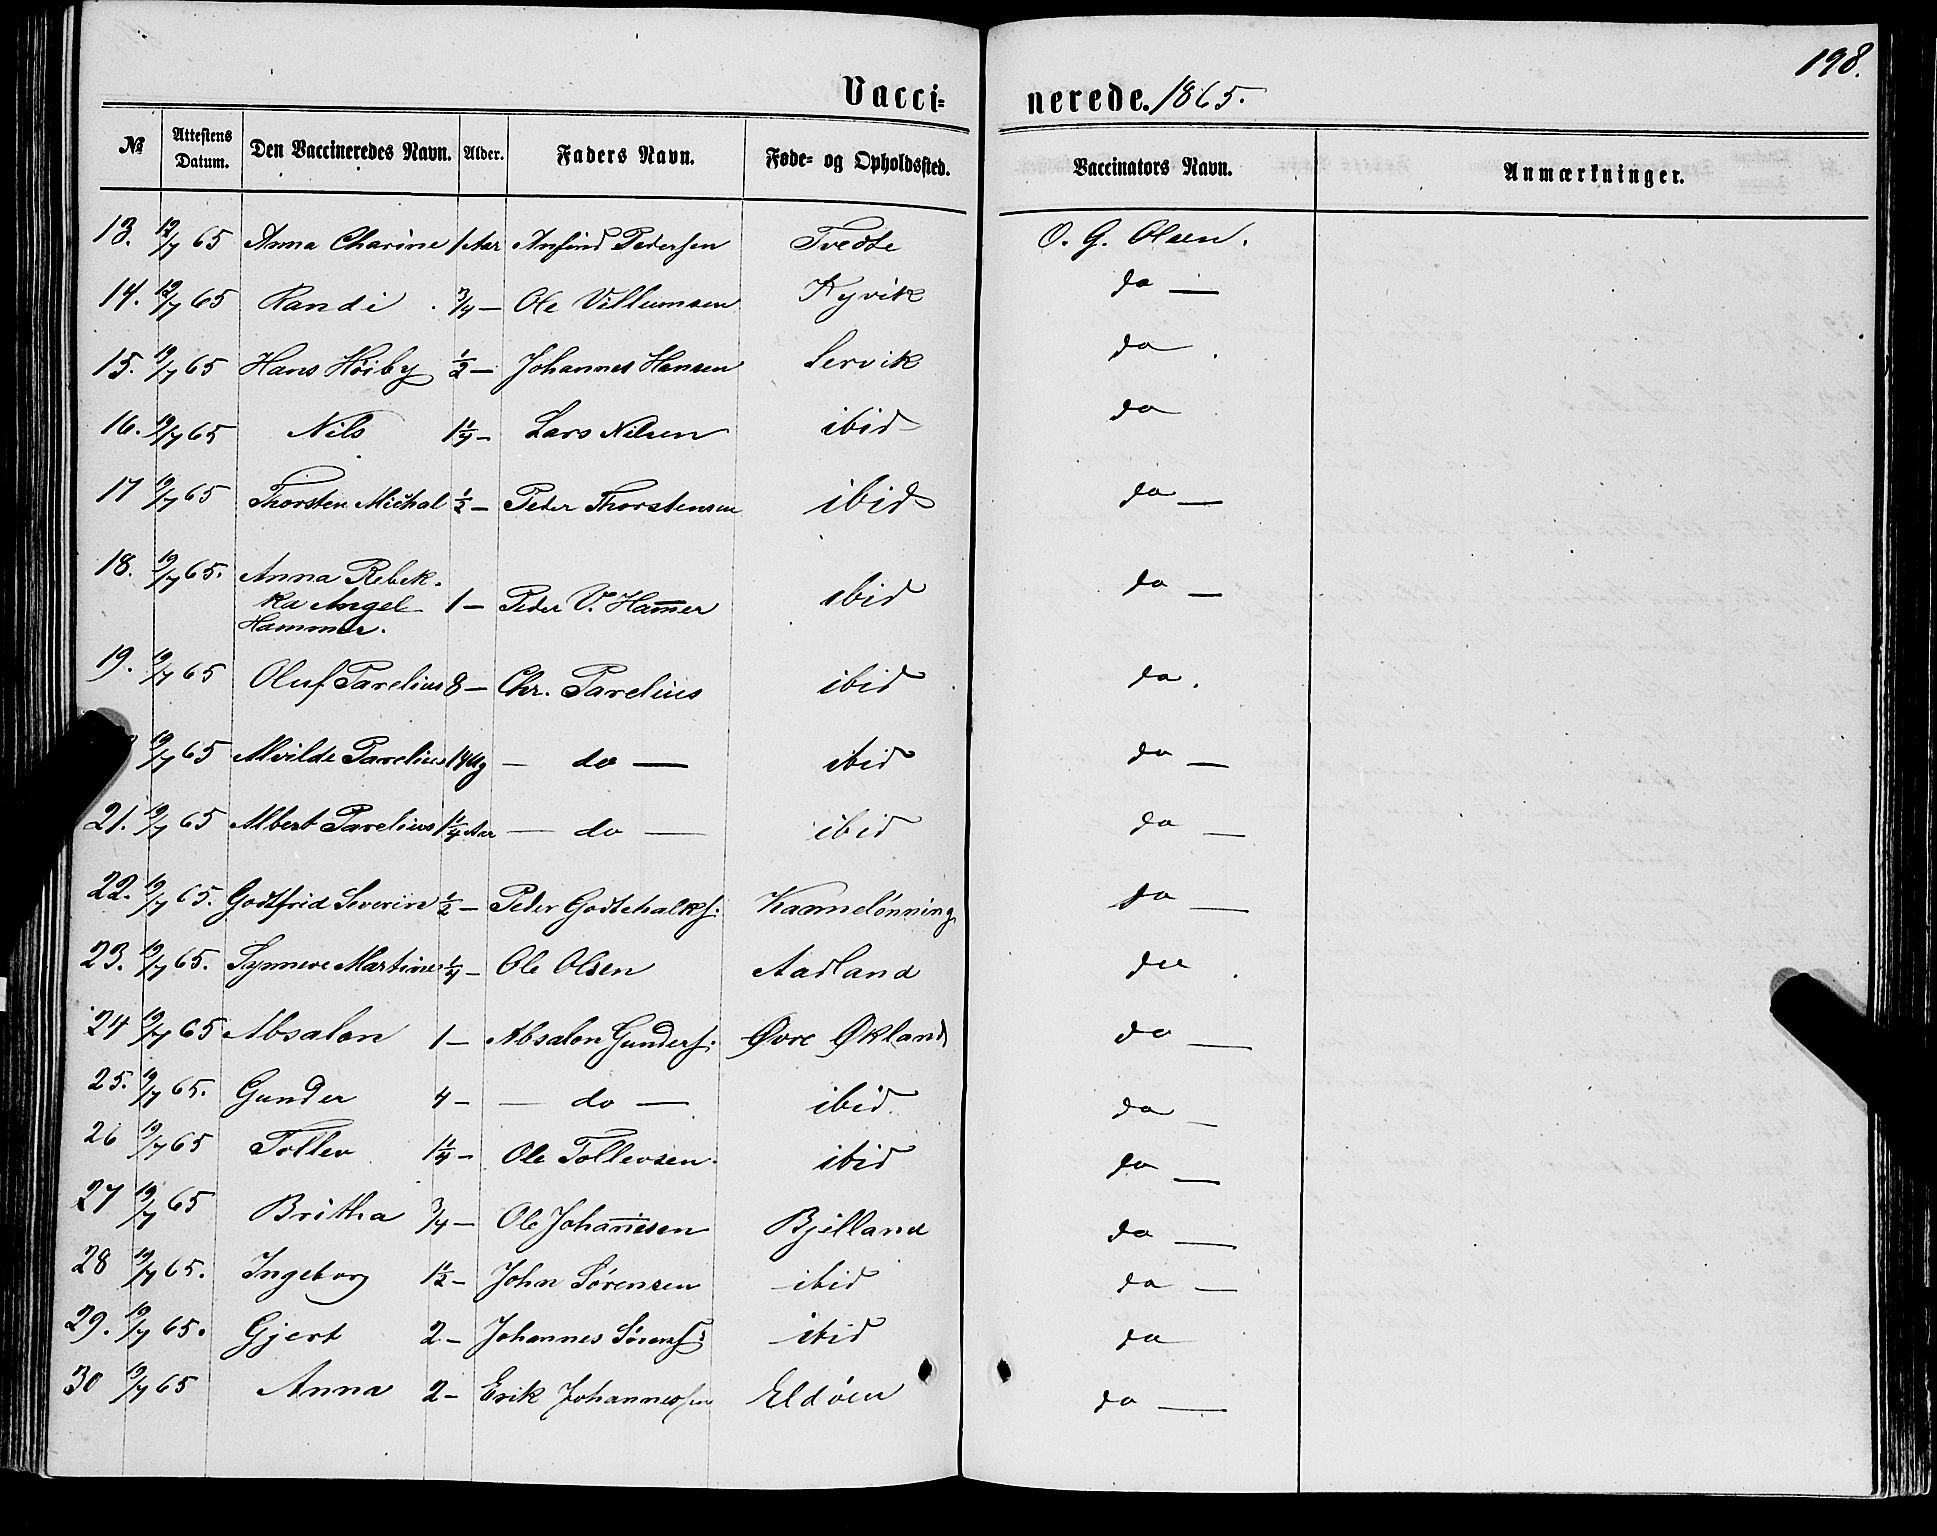 198.
Vacci= nerede. 1865.
№ Attestens Datum. Den Vaccineredes Navn. Alder. Faders Navn. Føde= og Opholdssted. Vaccinators Navn. Anmærkninger.
13. 12/7 65 Anna Charine 1 Aar Anfind Pedersen Tvedte O. G. Olsen.
14. 12/7 65 Randi 3/4 — Ole Villumsen Kyvik do —
15. 12/7 65 Hans Høiby 1/2 — Johannes Hansen Lervik do.
16. 12/7 65 Nils 1 1/4 — Lars Nilsen ibid do
17 12/7 65 Thorsten Michal 1/2 — Peder Thorstensen ibid do —
18. 12/7 65. Anna Rebek-
ka Angel 1 — Peder V. Ham̅er ibid do —
Hammer.
19. 12/7 65 Oluf Parelius 8 — Chr. Parelius ibid do.
12/7 65 Alvilde Parelius — do — ibid do —
21. 12/7 65 Albert Parelius 1 1/4 Aar — do — ibid do —
22. 12/7 65. Godtfrid Severin 1/2 — Peder Godtchalks: do —
23. 12/7 65. Synneve Martine 1/4 — Ole Olsen Aadland do.
24 12/7 65 Absalon 1 — Absalon Gunders: Øvre Økland do —
25. 12/7 65. Gunder 4 — — do — ibid. do —
26 12/7 65 Tollev 1 1/4 — Ole Tollevsen. ibid do —
27 12/7 65 Britha 3/4 — Ole Johan̅esen Bjelland do —
28 12/7 65. Ingeborg 1 1/2 — John Sørensen ibid do —
29. 12/7 65. Gjert 2 — Johannes Sørens: ibid do
30 12/7 65 Anna 2 — Erik Johannessen Eldøen do —